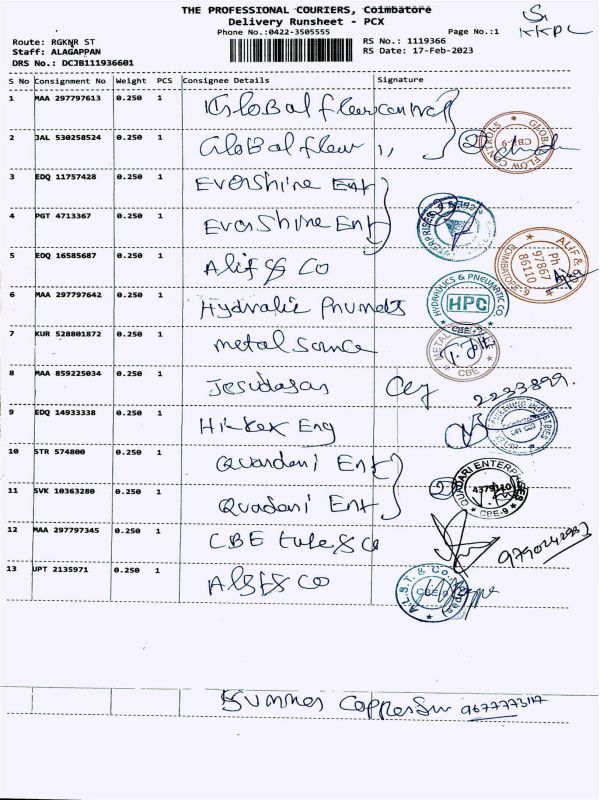 THE PROFESSIONAL COURIERS, Coimbatore
Delivery Runsheet - PCX
Phone No.:0422-3505555 Page No.:1
KKPL
Route: RGKNR ST RS No.: 1119366
Staff: ALAGAPPAN RS Date: 17-Feb-2023
DRS No.: DCJB111936601
S No Consignment No Weight PCS Consignee Details Signature
1 MAA 297797613 0.250 1 Global flow control
2 JAL 530258524 0.250 1 Global flow ,, 2
GLOBAL FLOW CONTROLS CBE-9
3 EDQ 11757428 0.250 1 Evershine Ent
4 PGT 4713367 0.250 1 Evershine Ent
5 EDQ 16585687 0.250 1 Alif & Co
ALIF & Ph 97867 86110 COIMBATORE-9
6 MAA 297797642 0.250 1 Hydralic Pnumats
HYDRAULICS & PNEUMATIC CO HPC CBE-9
7 KUR 528801872 0.250 1 metal
METAL CBE
8 MAA 859225034 0.250 1 Jesudasan 2233899.
9 EDQ 14933338 0.250 1 Hi-tex Eng
10 STR 574800 0.250 1 Quadani Ent
11 SVK 10363280 0.250 1 Quadani Ent 2
QUADARI ENTERPRISES 4379110 CBE-9
12 MAA 297797345 0.250 1 CBE tube & Co
13 UPT 2135971 0.250 1 Albt & Co
A.L.B.T. & Co. CBE-9
9677773117